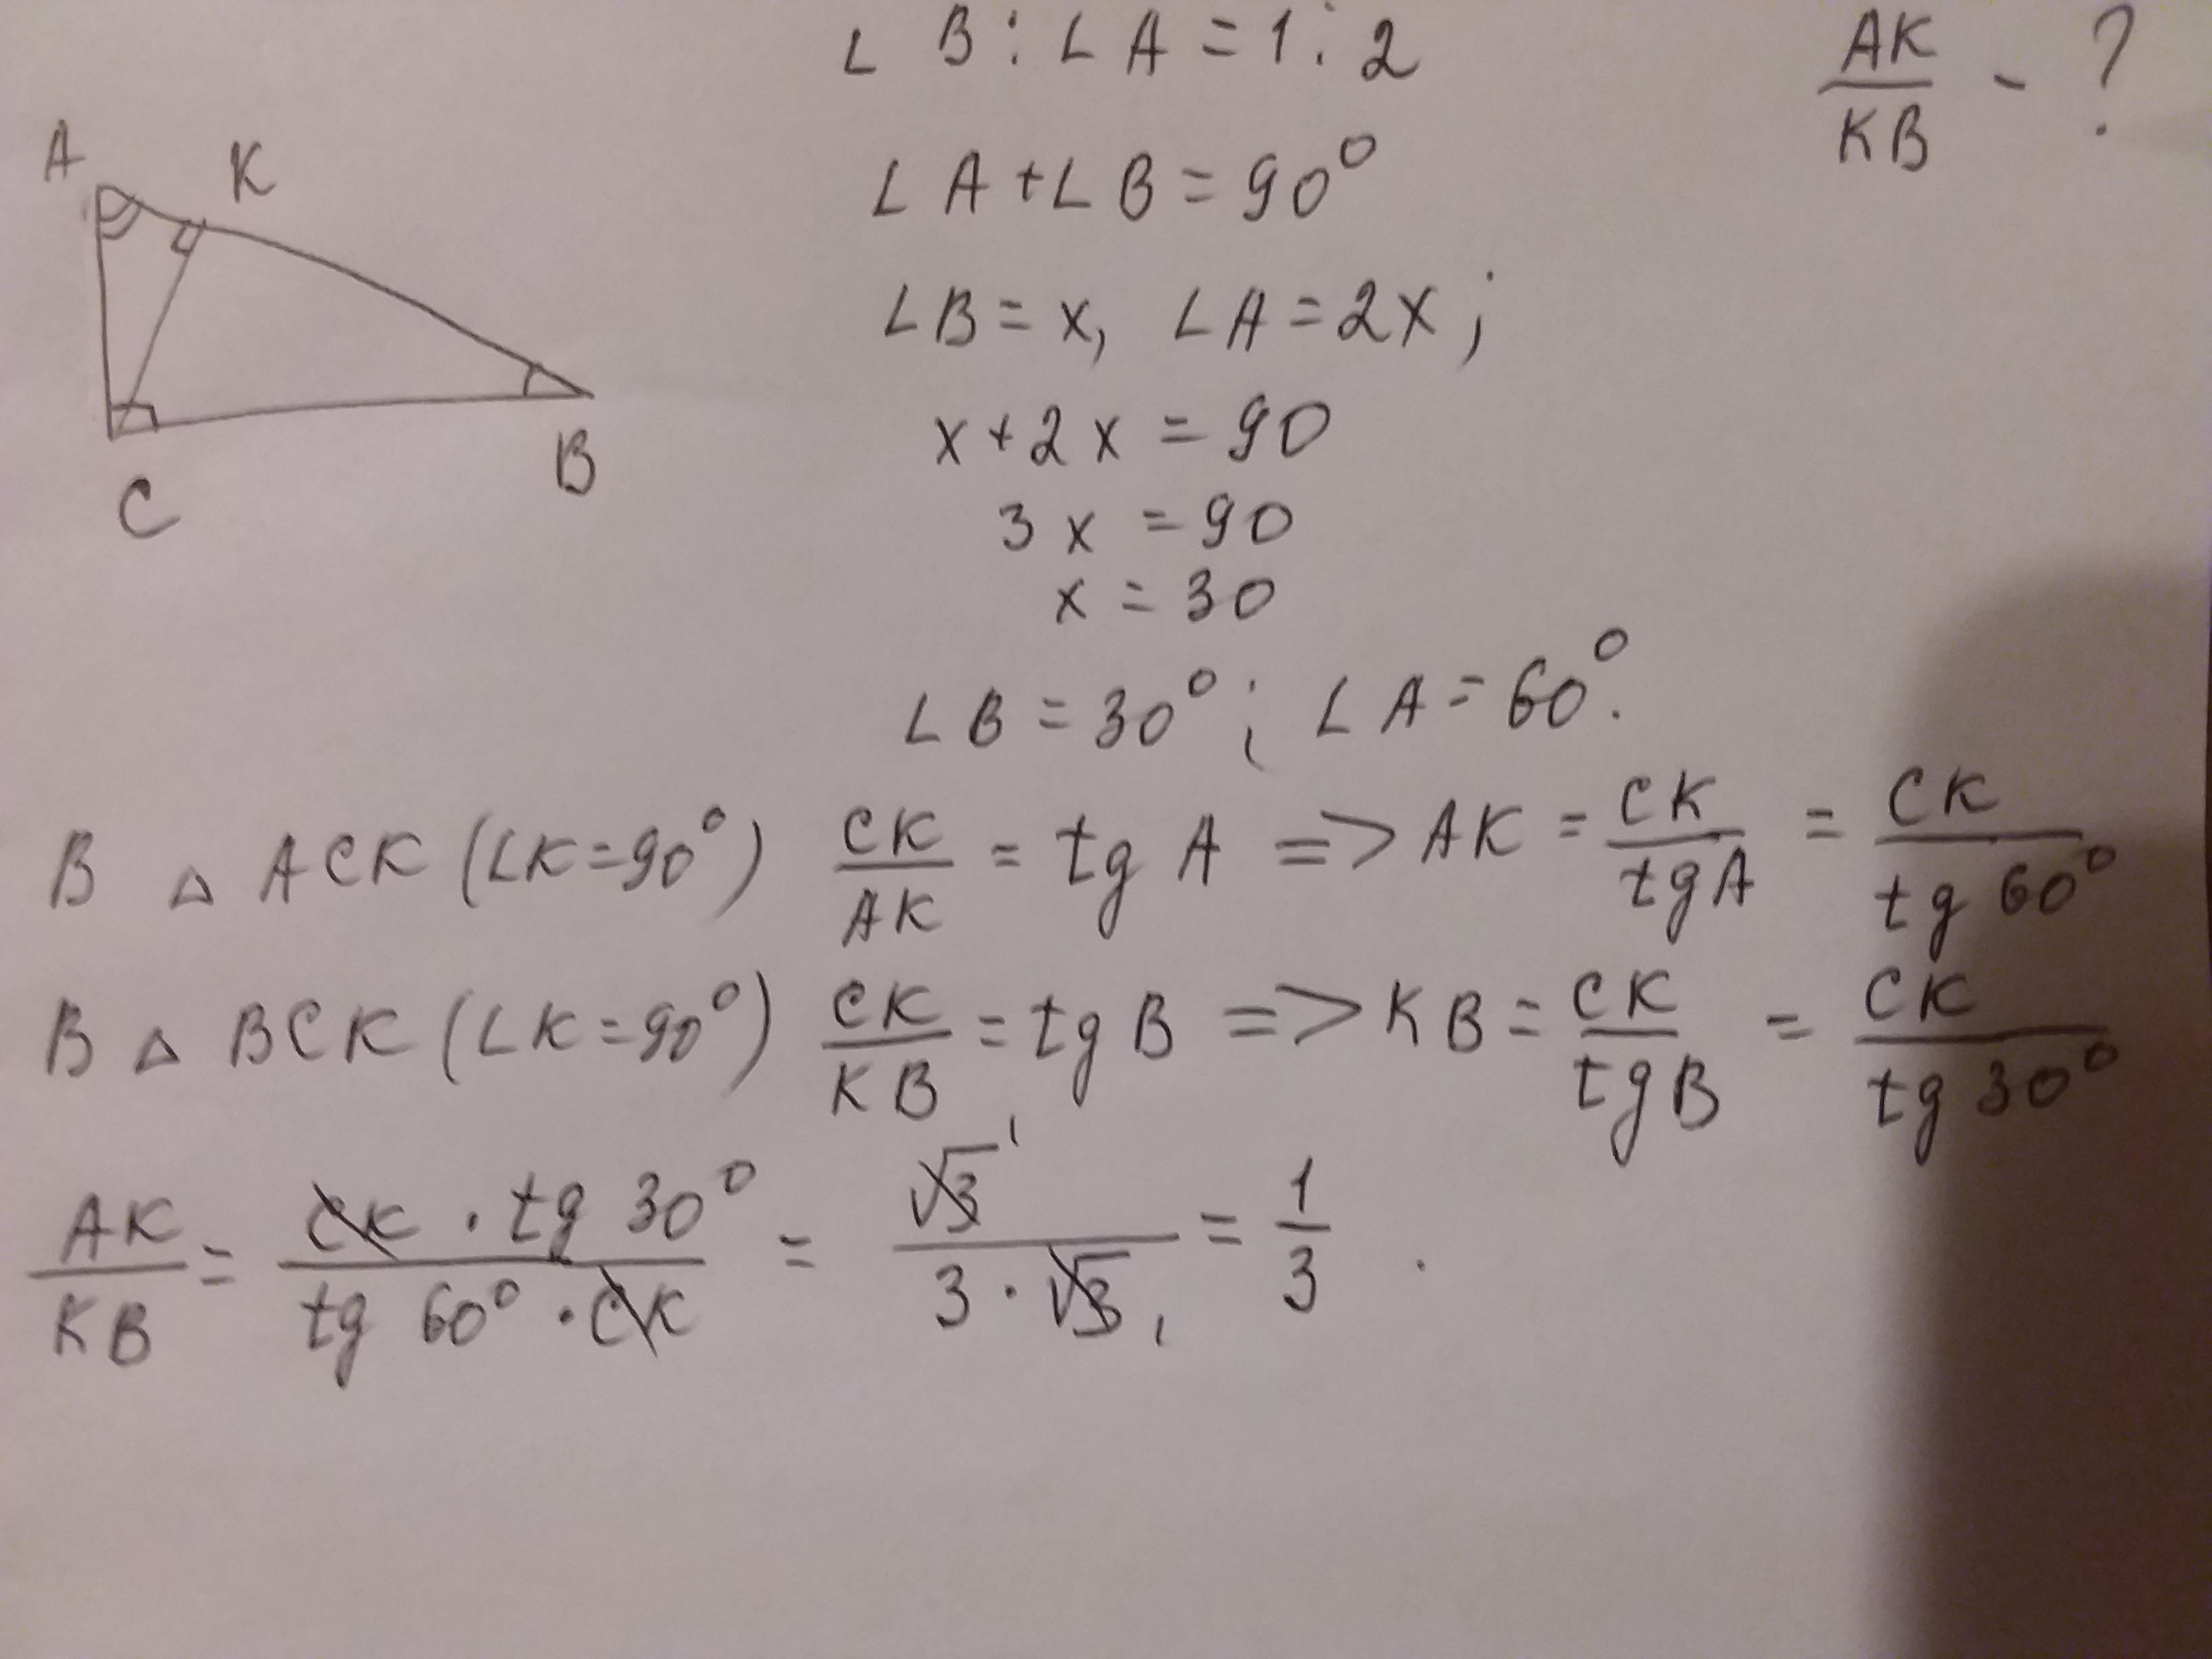 ∠ B : ∠ A = 1 : 2
AK/KB - ?
A
K
C
B
∠ A + ∠ B = 90°
∠B = x, ∠A = 2x;
x + 2x = 90
3x = 90
x = 30
∠B = 30°; ∠A = 60°.
В △ ACK (∠K=90°) CK/AK = tg A => AK = CK/tgA = CK/tg 60°
В △ BCK (∠K=90°) CK/KB = tg B => KB = CK/tgB = CK/tg 30°
AK/KB = CK · tg 30°/tg 60° · CK = √3 1/3 · √3 1 = 1/3.